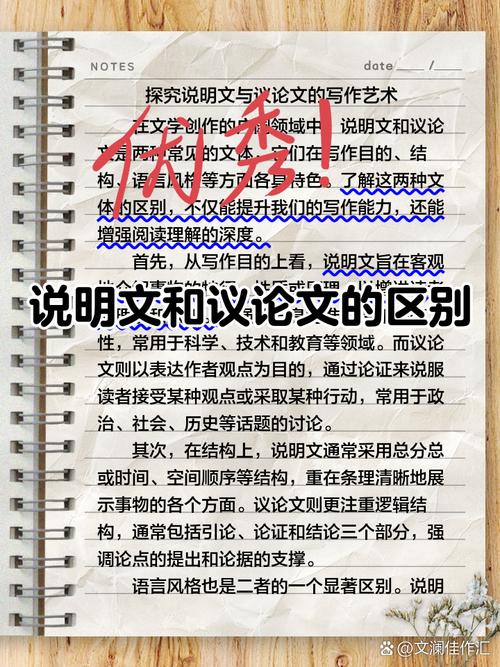 NOTES
date /
探究说明文与议论文的写作艺术
在文学创作的 领域中，说明文和议论
文是两种常见的文体，它们在写作目的、结
构、语言风格等方面各具特色。了解这两种文
体的区别，不仅能提升我们的写作能力，还能
增强阅读理解的深度。
优秀！
首先，从写作目的上看，说明文旨在客观
说明文和议论文的区别
性，常用于科学、技术和教育等领域。而议论
文则以表达作者观点为目的，通过论证来说服
读者接受某种观点或采取某种行动，常用于政
治、社会、历史等话题的讨论。
其次，在结构上，说明文通常采用总分总
或时间、空间顺序等结构，重在条理清晰地展
示事物的各个方面。议论文则更注重逻辑结
构，通常包括引论、论证和结论三个部分，强
调论点的提出和论据的支撑。
语言风格也是二者的一个显著区别。说明
文澜佳作汇